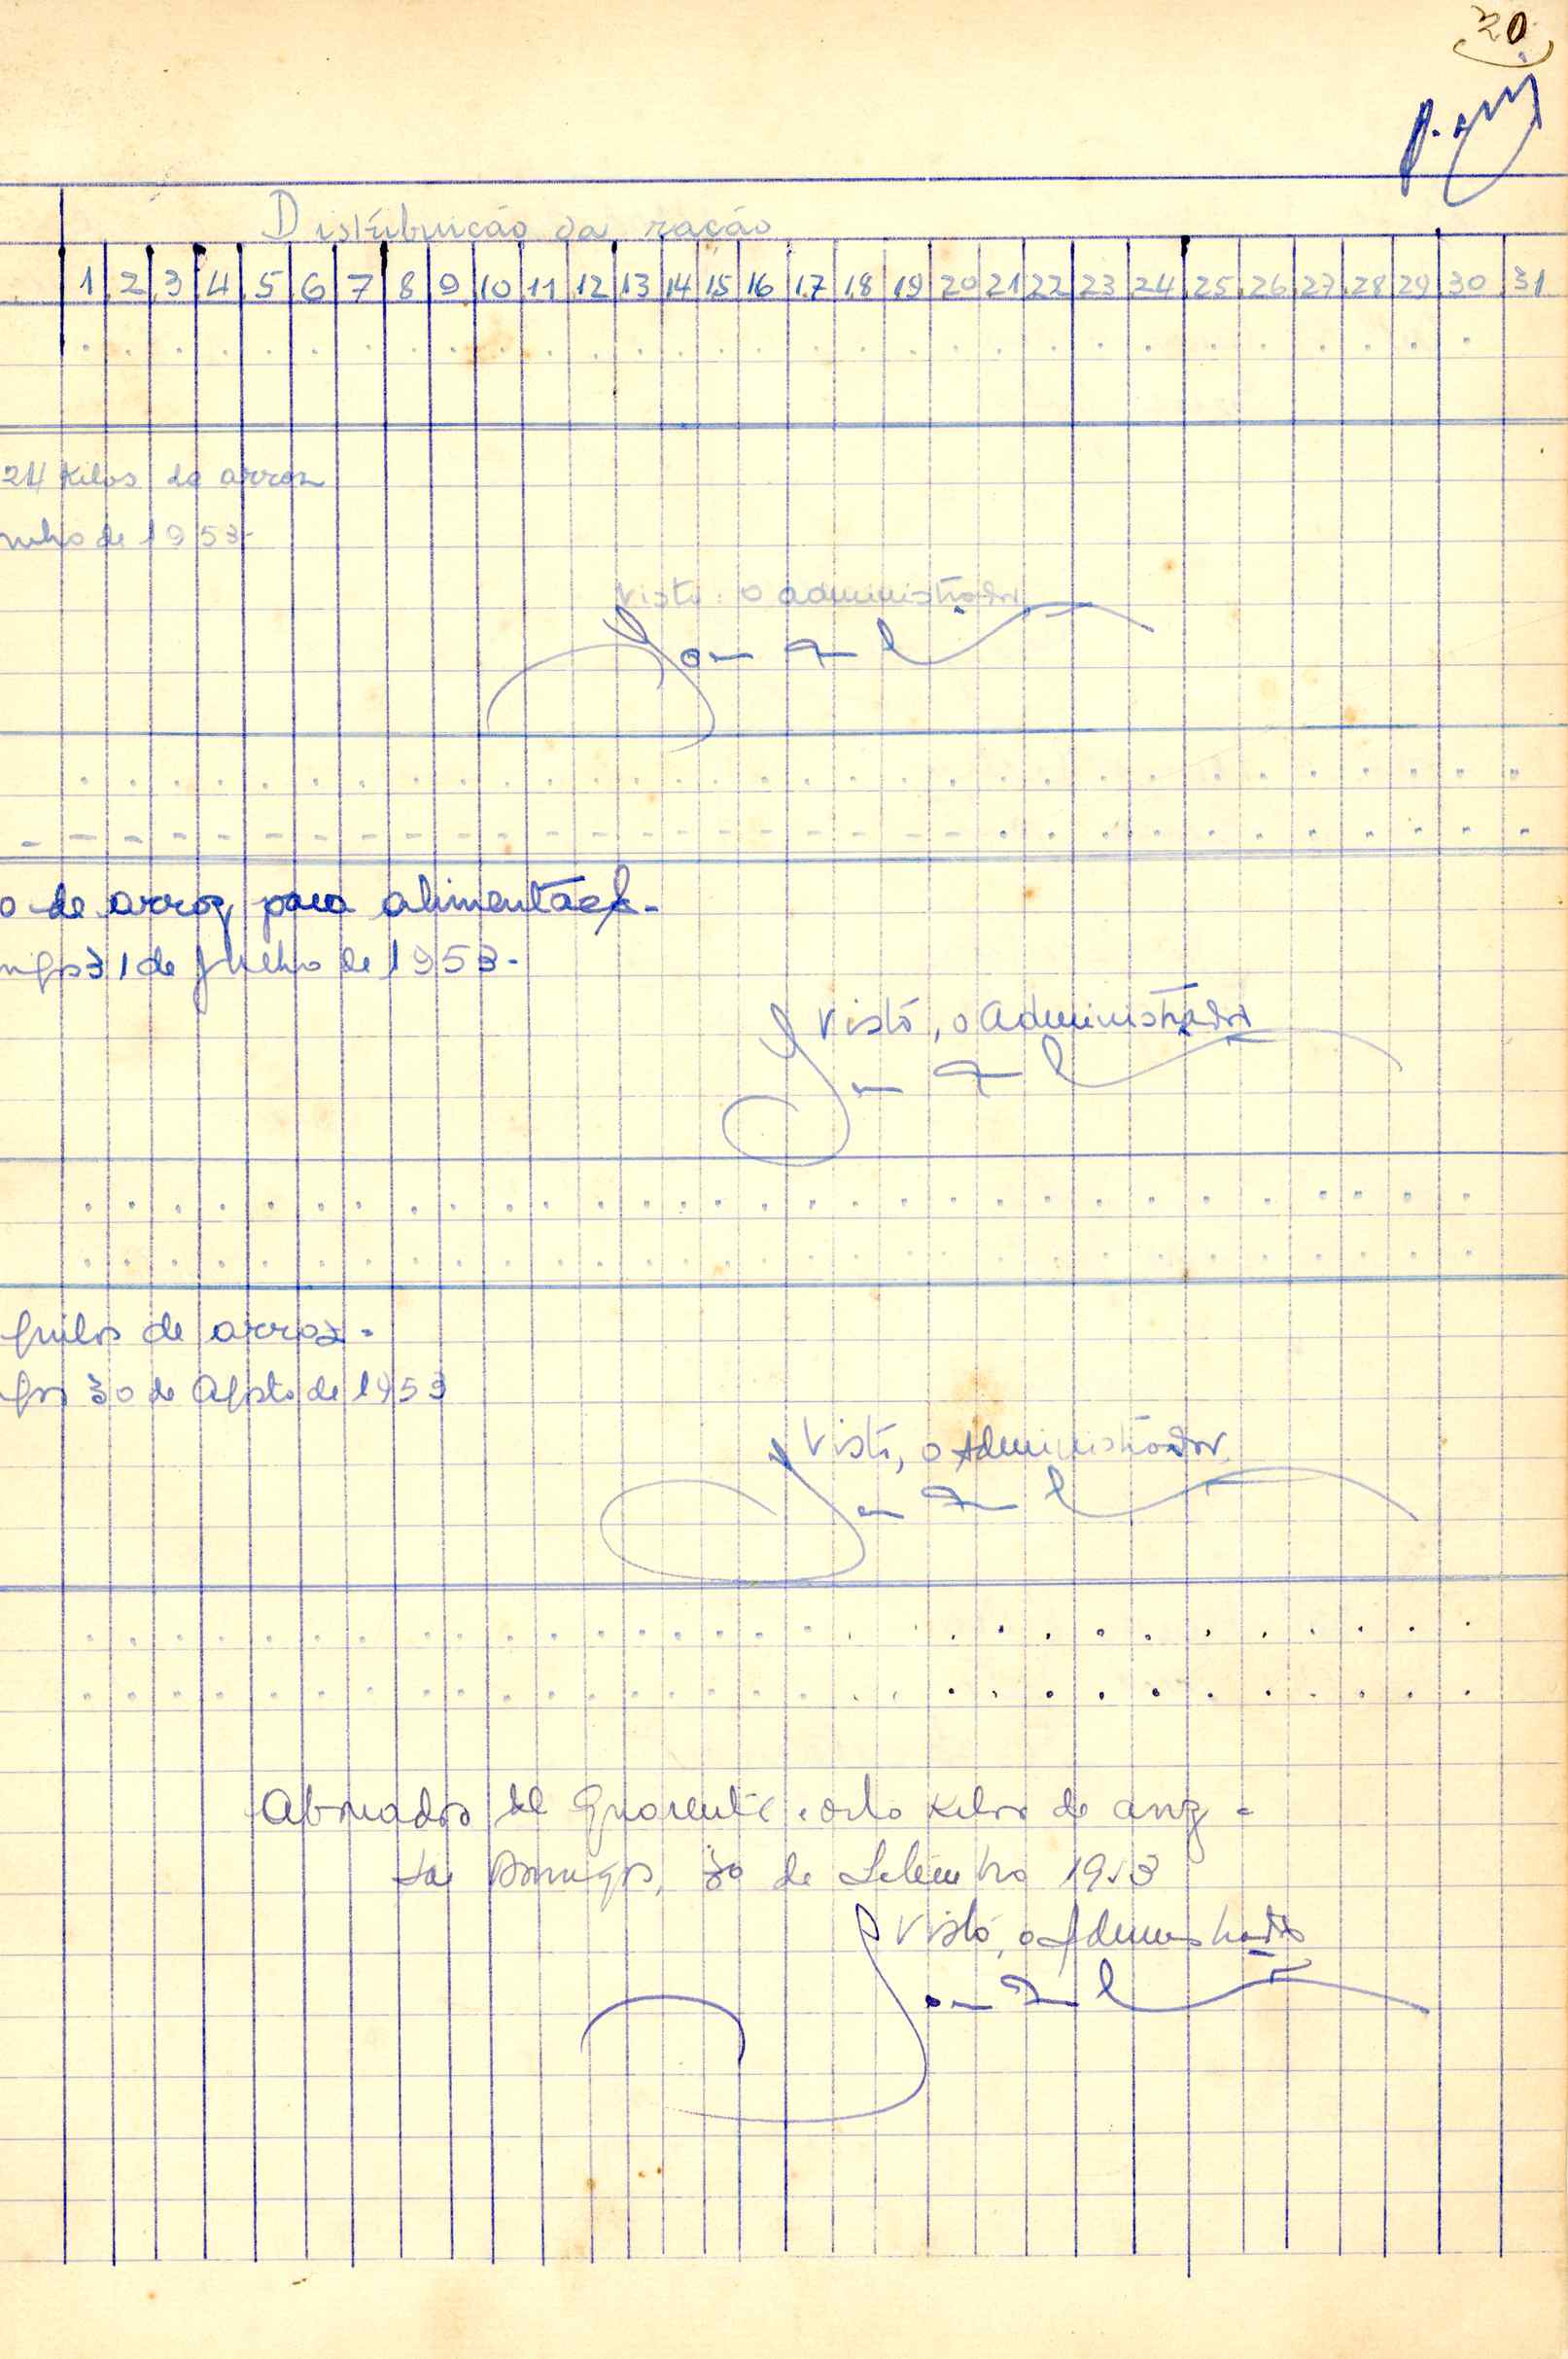 20
Distribuição da ração
1 2 3 4 5 6 7 8 9 10 11 12 13 14 15 16 17 18 19 20 21 22 23 24 25 26 27 28 29 30 31
24 Kilos de arroz
nho de 1953-
Visto: o administrador
o de arroz para alimentação-
ngos 31 de Julho de 1953-
Visto, o Administrador
quilos de arroz-
gos 30 de Agosto de 1953
Visto, o Administrador
Abonados de Quarenta e oito Kilos de arroz-
Domingos, 30 de Setembro 1953
Visto, o Administrador